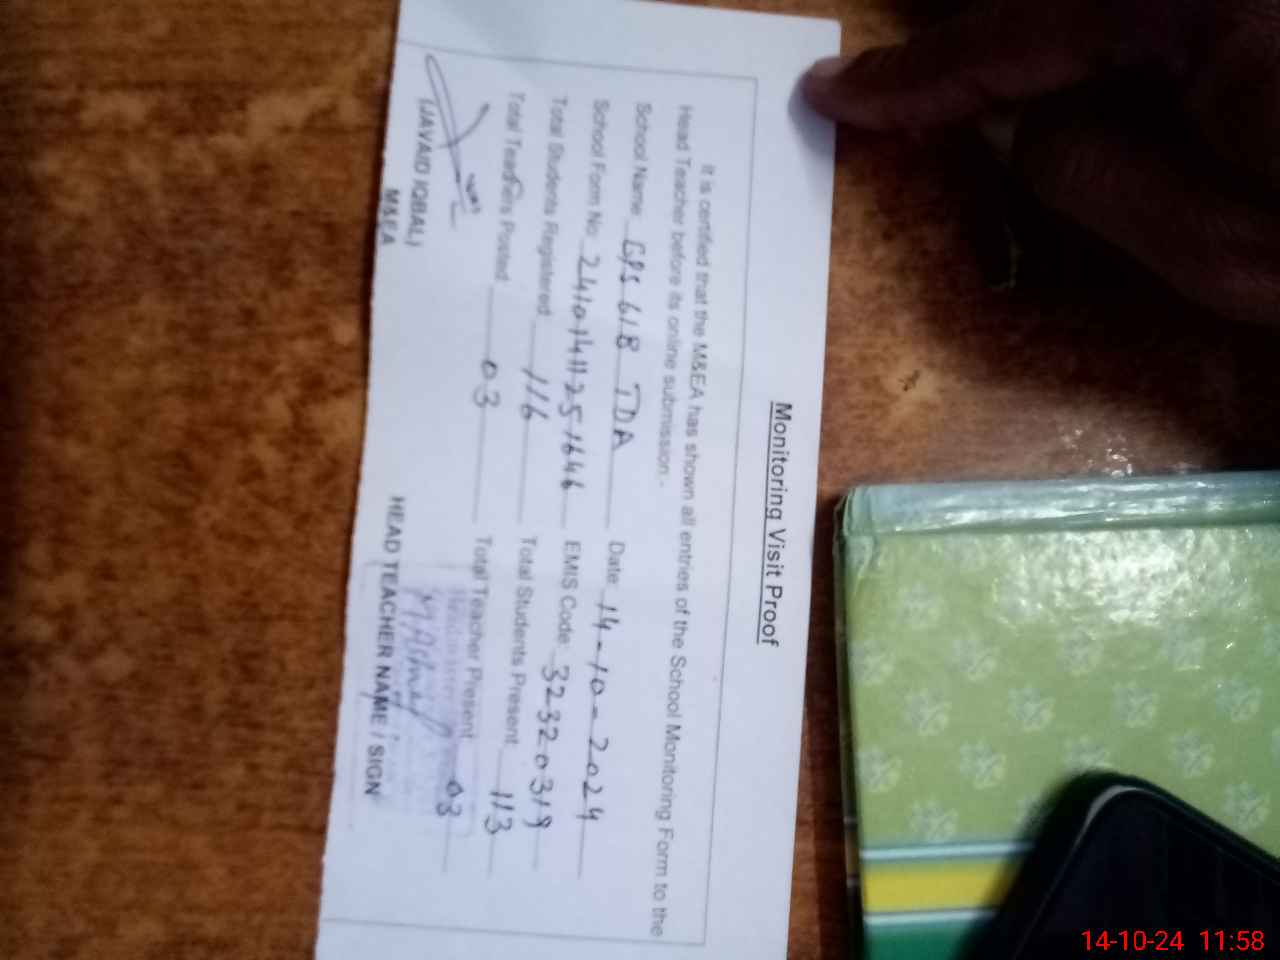 Monitoring Visit Proof
It is certified that the M&EA has shown all entries of the School Monitoring Form to the
Head Teacher before its online submission:-
School Name: GPS 618 TDA Date: 14-10-2024
School Form No: 2410141125 1646 EMIS Code: 32320319
Total Students Registered 116 Total Students Present 113
Total Teachers Posted 03 Total Teacher Present 03
(JAVAID IQBAL)
M&EA
HEAD TEACHER NAME / SIGN
14-10-24 11:58